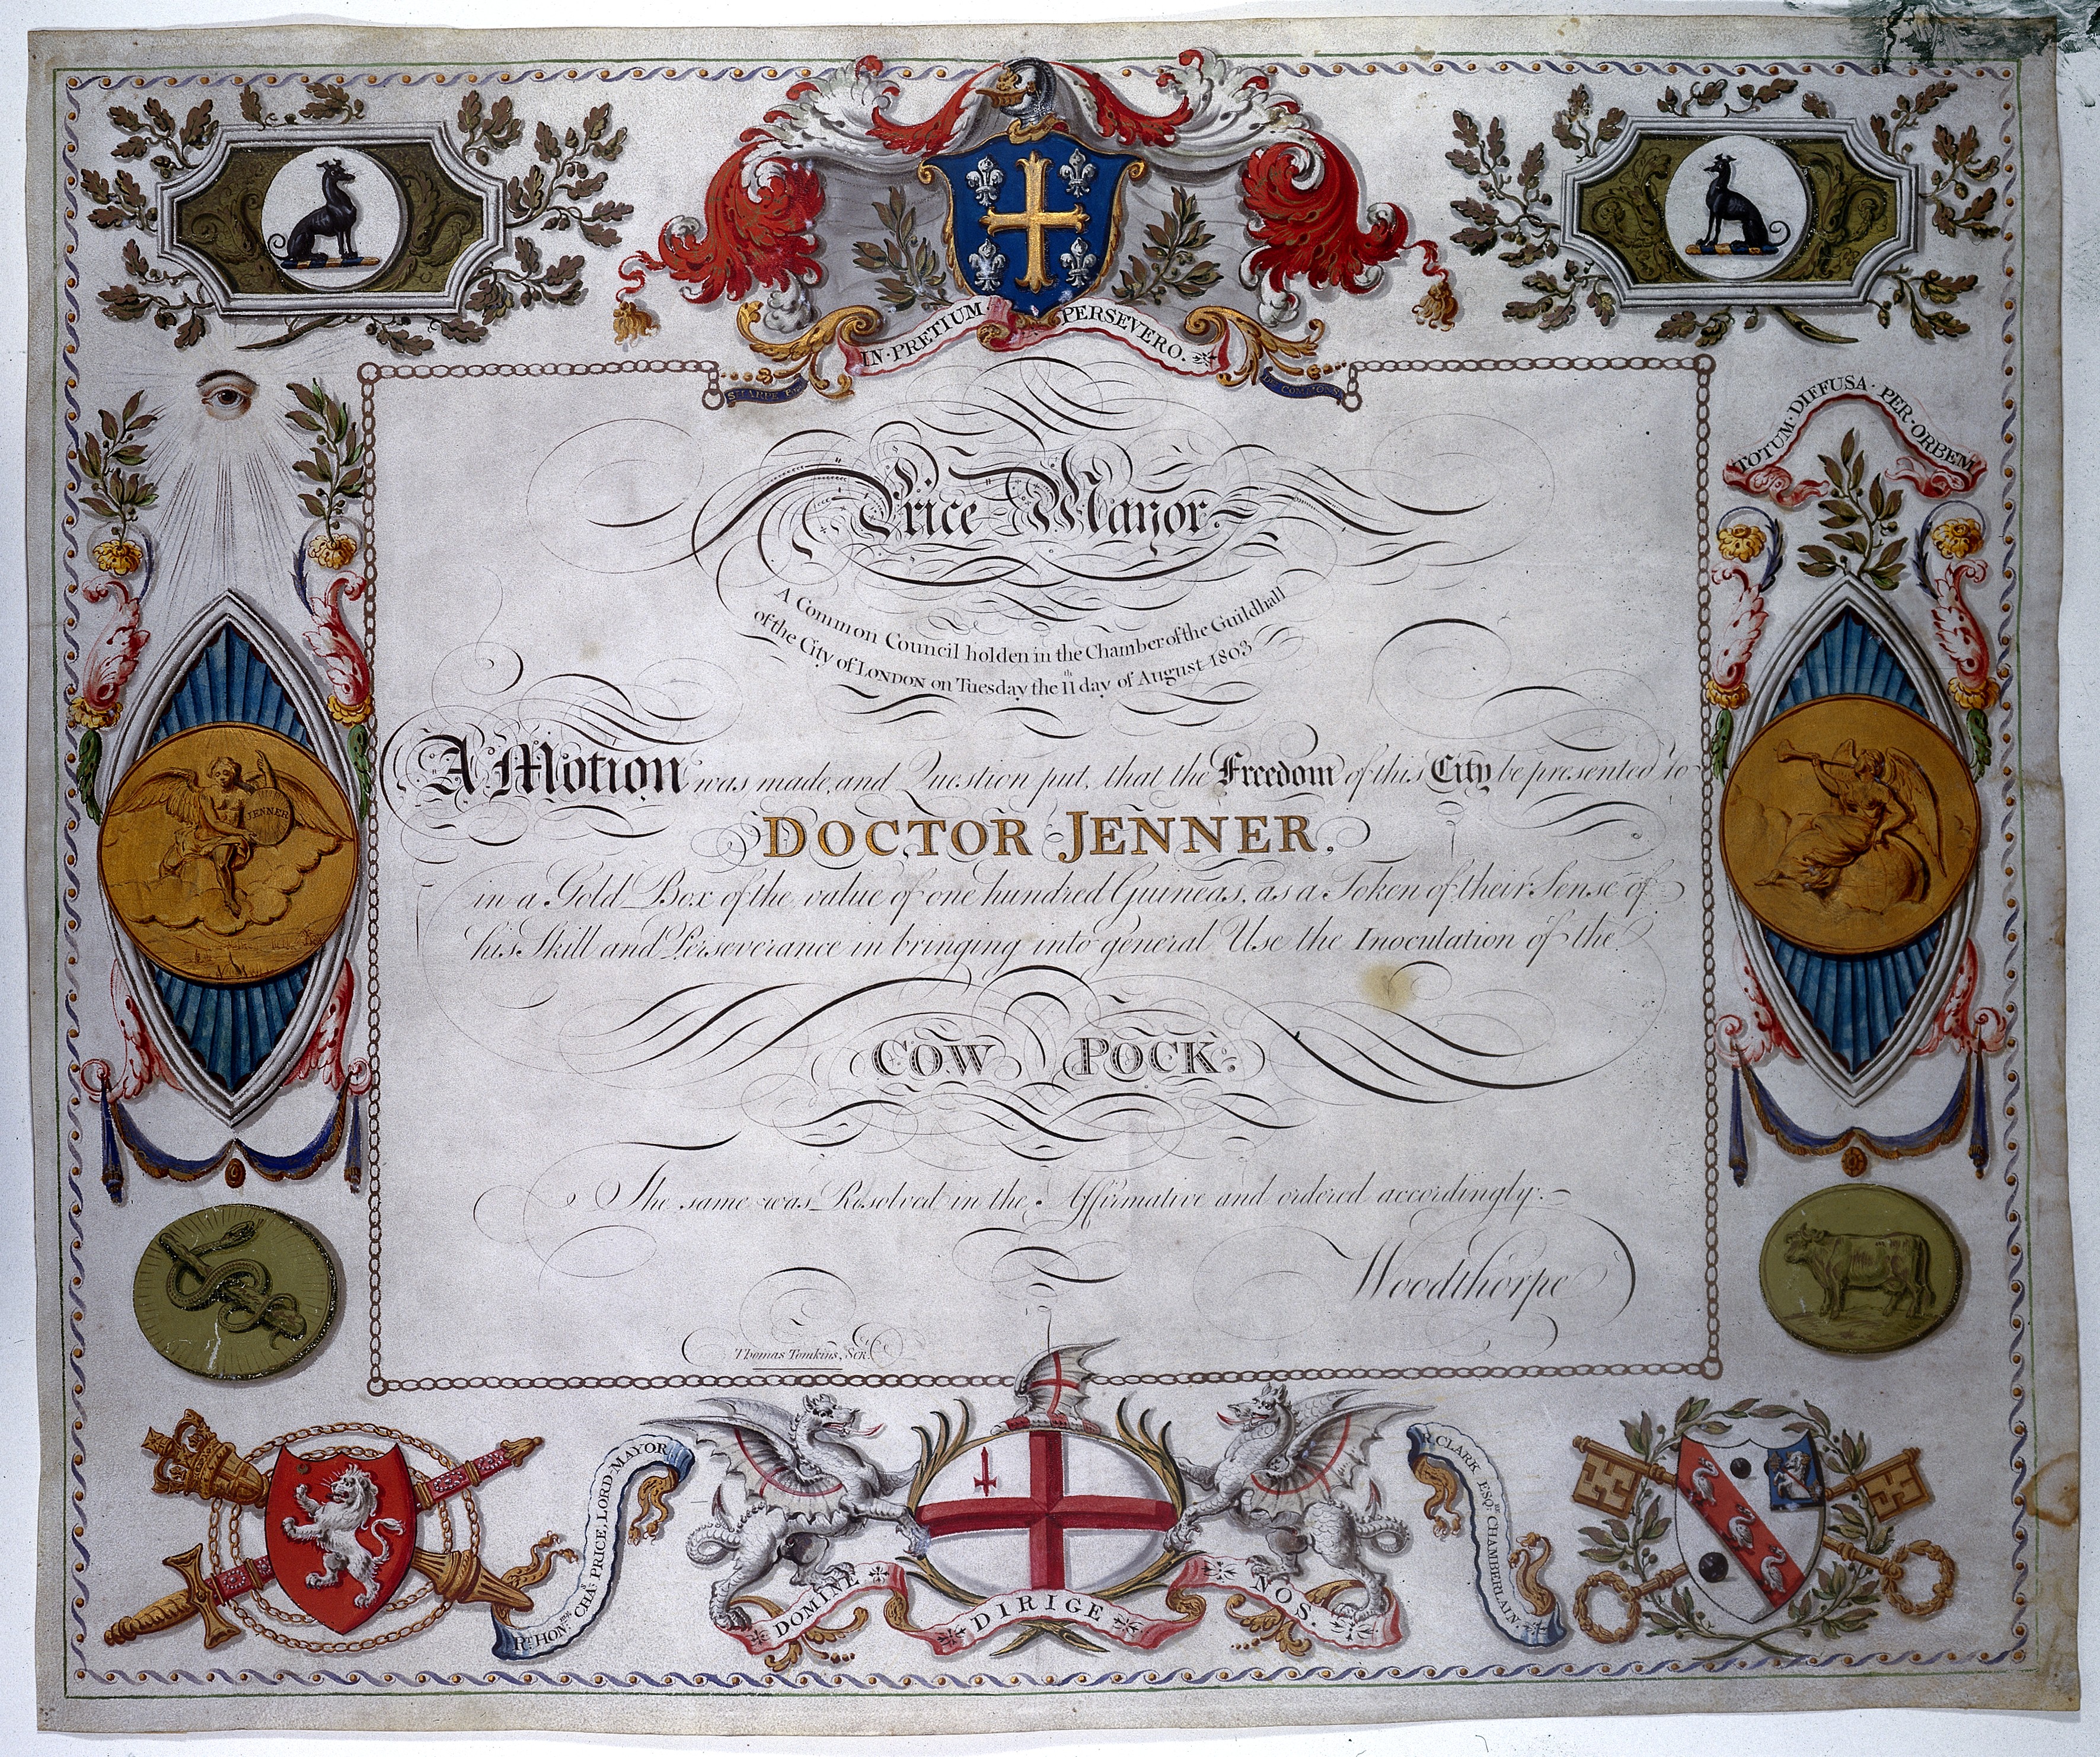 IN·PRETIUM· PERSEVERO.
TOTUM·DIFFUSA·PER·ORBEM
Price Mayor.
A Common Council holden in the Chamber of the Guildhall
of the City of LONDON on Tuesday the 11th day of August 1803
A Motion was made, and Question put, that the Freedom of this City be presented to
DOCTOR JENNER,
in a Gold Box of the value of one hundred Guineas, as a Token of their Sense of
his Skill and Perseverance in bringing into general Use the Inoculation of the
COW POCK.
JENNER
The same was Resolved in the Affirmative and ordered accordingly.
Woodthorpe
Thomas Tomkins, Scr.
RT HONble CHAs PRICE, LORD MAYOR
R. CLARK ESQr. CHAMBERLAIN
DOMINE DIRIGE NOS.